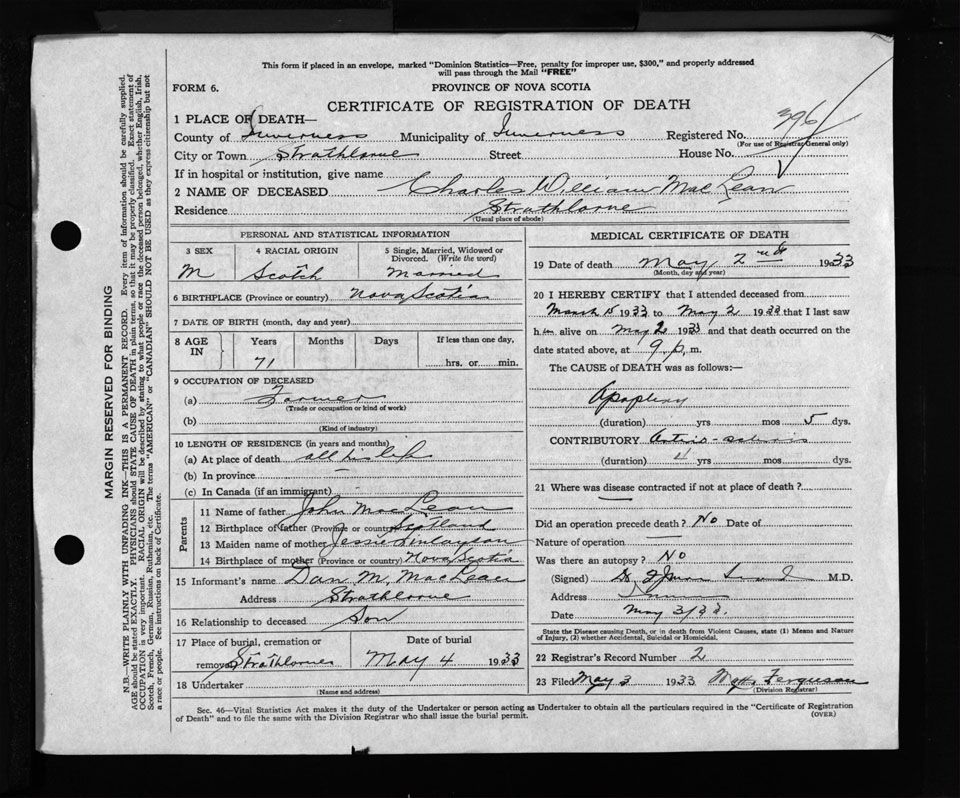 This form if placed in an envelope, marked "Dominion Statistics—Free, penalty for improper use, $300," and properly addressed
will pass through the Mail "FREE"
FORM 6.
PROVINCE OF NOVA SCOTIA
CERTIFICATE OF REGISTRATION OF DEATH
1 PLACE OF DEATH—
County of Inverness Municipality of Inverness Registered No. 396
(For use of Registrar General only)
City or Town Strathlorne Street House No.
If in hospital or institution, give name
2 NAME OF DECEASED Charles William MacLean
Residence Strathlorne
(Usual place of abode)
PERSONAL AND STATISTICAL INFORMATION
3 SEX 4 RACIAL ORIGIN 5 Single, Married, Widowed or
Divorced. (Write the word)
M Scotch Married
6 BIRTHPLACE (Province or country) Nova Scotia
7 DATE OF BIRTH (month, day and year)
8 AGE IN Years Months Days If less than one day,
71 hrs. or min.
9 OCCUPATION OF DECEASED
(a) Farmer
(Trade or occupation or kind of work)
(b)
(Kind of industry)
10 LENGTH OF RESIDENCE (in years and months)
(a) At place of death all his life
(b) In province —
(c) In Canada (if an immigrant)
Parents
11 Name of father John MacLean
12 Birthplace of father (Province or country) Scotland
13 Maiden name of mother Jessie Finlayson
14 Birthplace of mother (Province or country) Nova Scotia
15 Informant's name Dan M. MacLean
Address Strathlorne
16 Relationship to deceased Son
17 Place of burial, cremation or Date of burial
removal Strathlorne May 4 1933
18 Undertaker
(Name and address)
MEDICAL CERTIFICATE OF DEATH
19 Date of death May 2nd 1933
(Month, day and year)
20 I HEREBY CERTIFY that I attended deceased from
March 15 1933 to May 2 1933 that I last saw
him alive on May 2 1933 and that death occurred on the
date stated above, at 9 p. m.
The CAUSE of DEATH was as follows:—
Apoplexy
(duration) yrs mos 5 dys.
CONTRIBUTORY
(duration) 4 yrs mos dys.
21 Where was disease contracted if not at place of death?
—
Did an operation precede death? No Date of
Nature of operation —
Was there an autopsy? No
(Signed) M.D.
Address
Date May 3/33.
State the Disease causing Death, or in death from Violent Causes, state (1) Means and Nature
of Injury, (2) whether Accidental, Suicidal or Homicidal.
22 Registrar's Record Number 2
23 Filed May 3 1933 Ferguson
(Division Registrar)
Sec. 46—Vital Statistics Act makes it the duty of the Undertaker or person acting as Undertaker to obtain all the particulars required in the "Certificate of Registration
of Death" and to file the same with the Division Registrar who shall issue the burial permit.
(OVER)
MARGIN RESERVED FOR BINDING
N.B.—WRITE PLAINLY WITH UNFADING INK—THIS IS A PERMANENT RECORD. Every item of information should be carefully supplied.
AGE should be stated EXACTLY. PHYSICIANS should STATE CAUSE OF DEATH in plain terms, so that it may be properly classified. Exact statement of
OCCUPATION is very important. RACIAL ORIGIN will be described by stating to what people or race the deceased person belonged, whether English, Irish,
Scotch, French, German, Russian, Ruthenian, etc. The terms "AMERICAN" or "CANADIAN" SHOULD NOT BE USED as they express citizenship but not
a race or people. See instructions on back of Certificate.